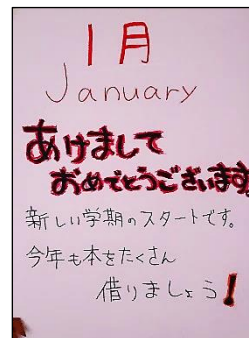 1月
January
あけまして
おめでとうございます
新しい学期のスタートです。
今年も本をたくさん
借りましょう!